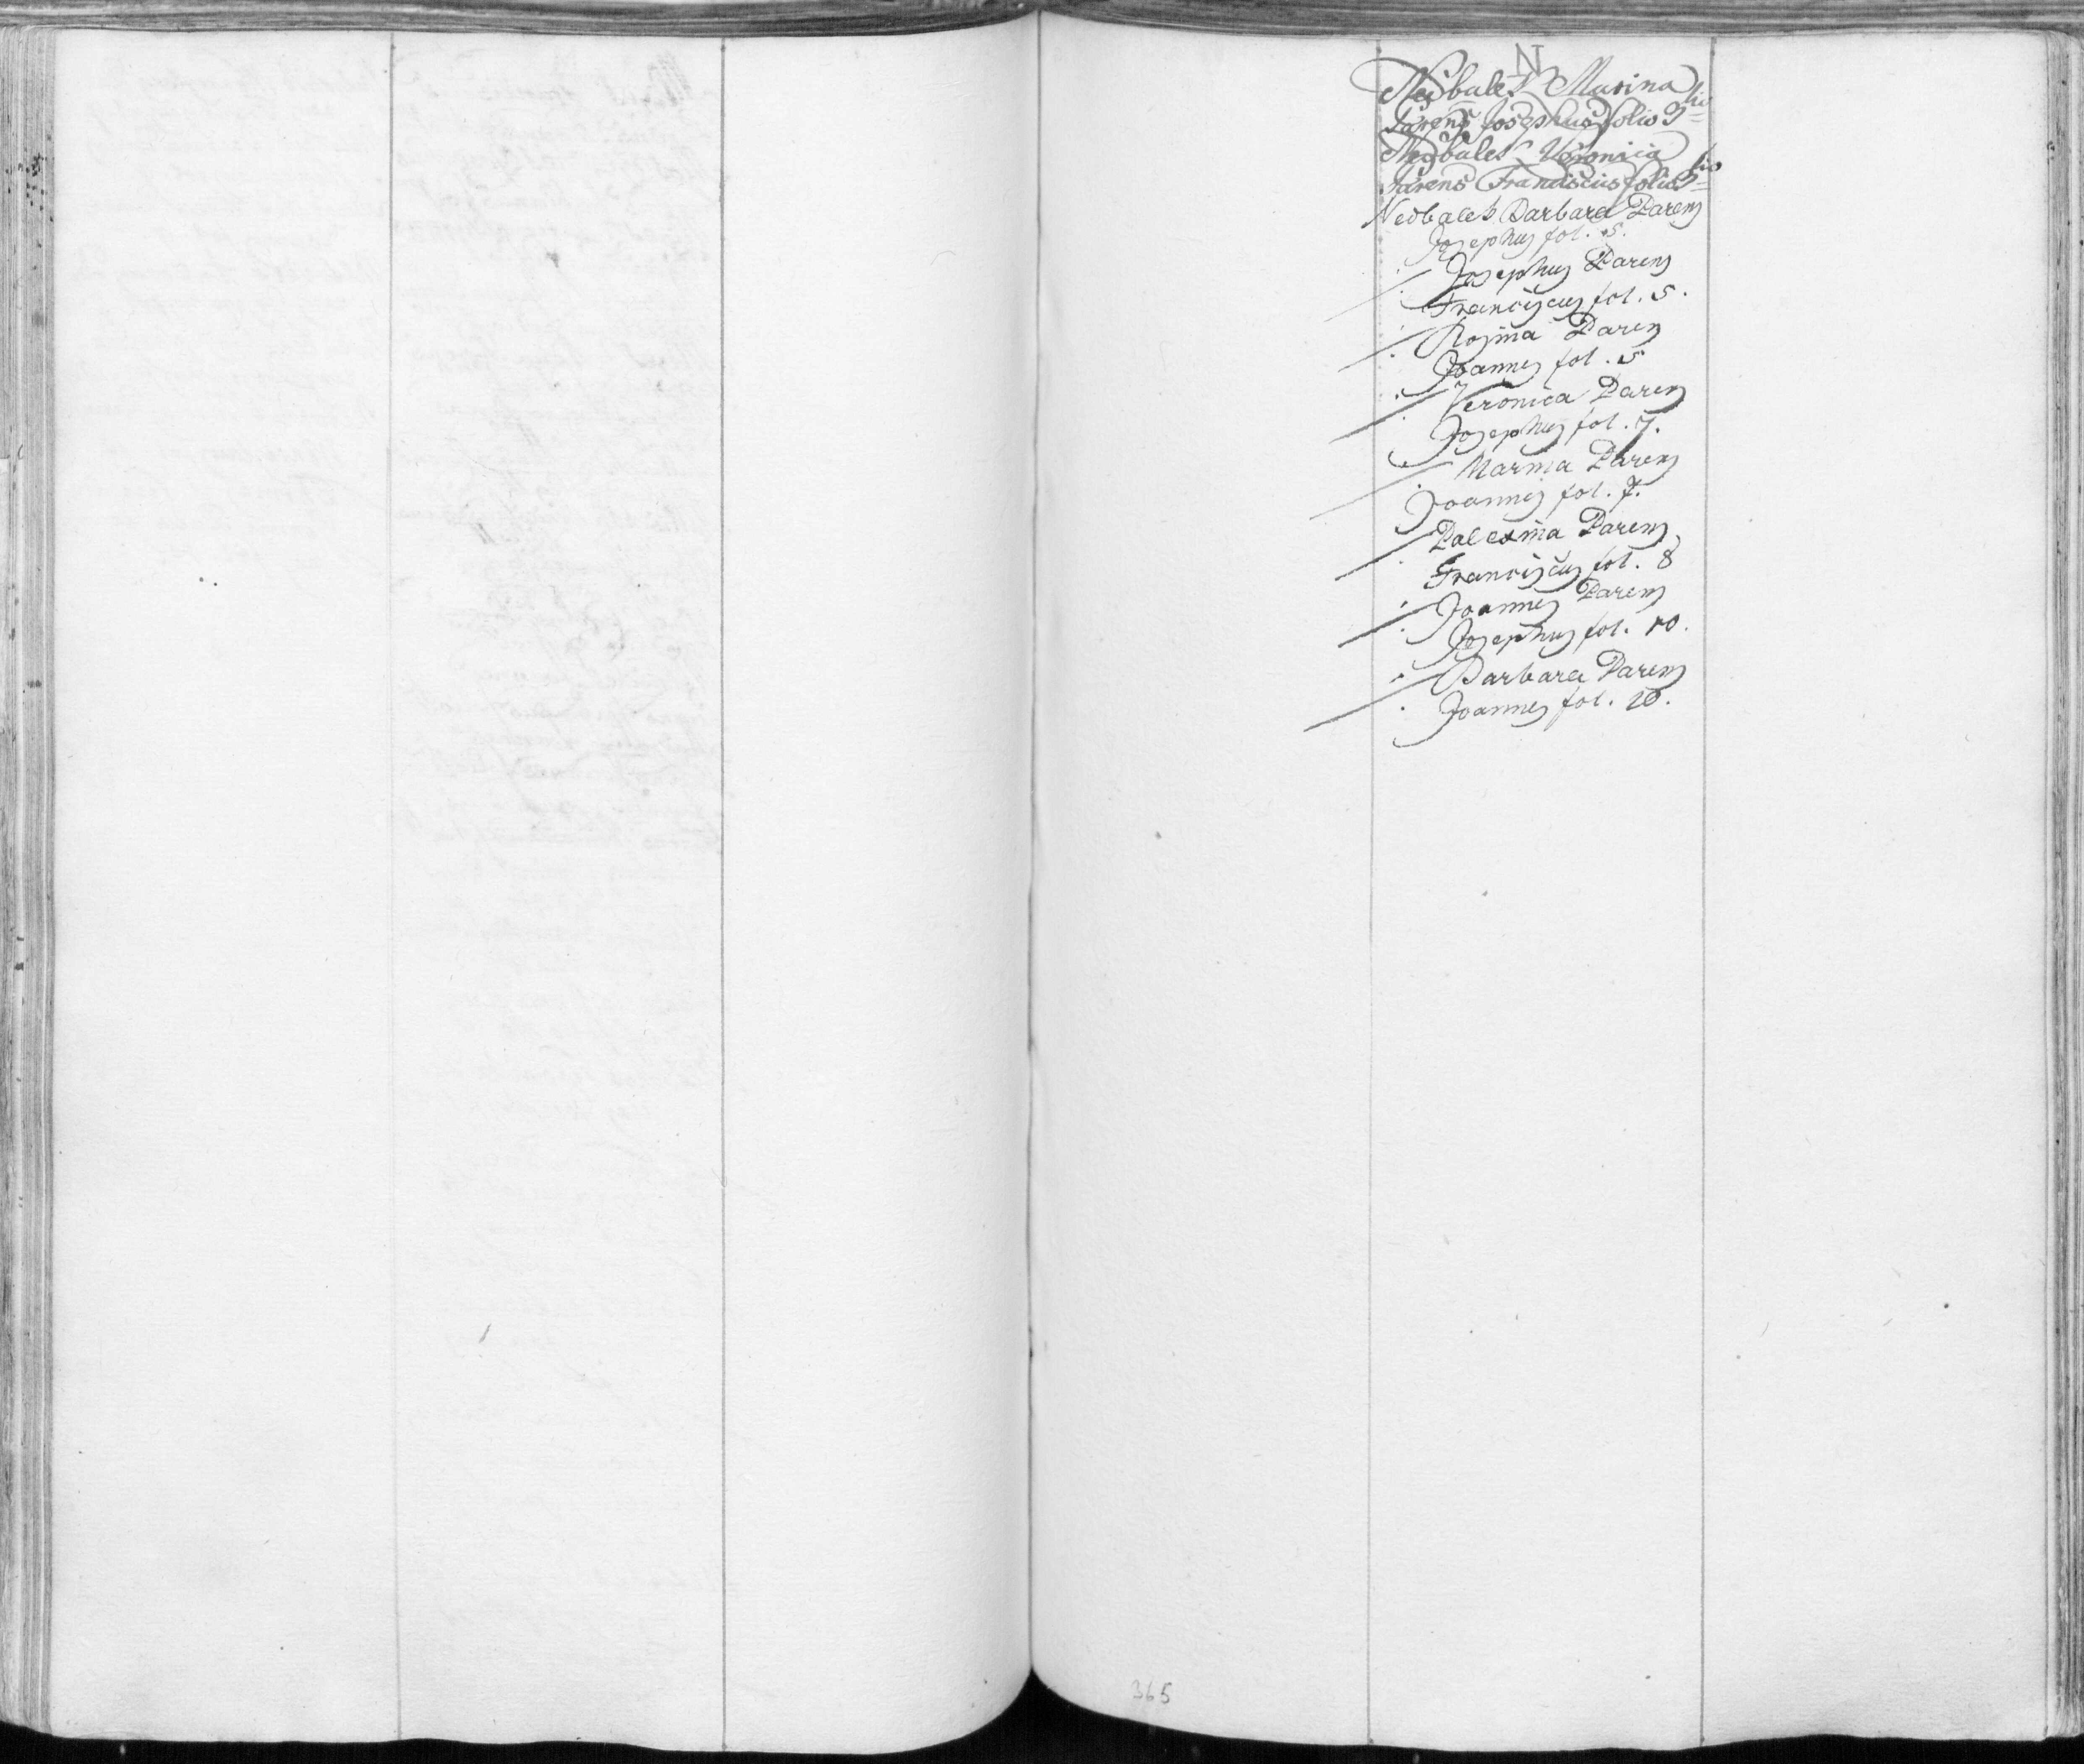 N
Nedbalek Marina
Parens Josephus folio 3tio
Nedbalek Veronica
Parens Franciscus folio 3tio
Nedbalek Barbara Parens
Josephus fol. 5.
Josephus Parens
Franciscus fol. 5.
Rosina Parens
Joannes fol. 5
Veronica Parens
Josephus fol. 7.
Marina Parens
Joannes fol. 7.
Parens
Franciscus fol. 8
Joannes Parens
Josephus fol. 10.
Barbara Parens
Joannes fol. 10.
365